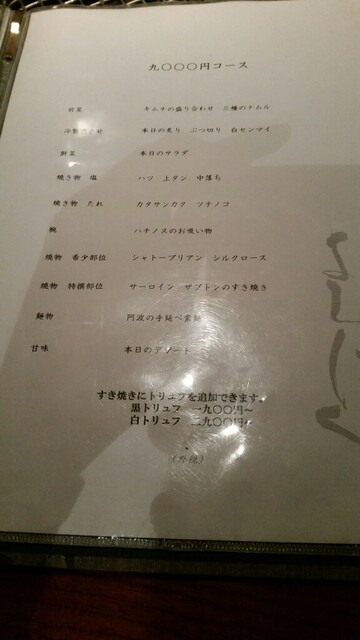 九〇〇〇円コース
前菜 キムチの盛り合わせ 三種のナムル
本日の炙り ぶつ切り 白センマイ
鮮菜 本日のサラダ
焼き物 塩 ハツ 上タン 中落ち
焼き物 たれ カタサンカク ツチノコ
椀 ハチノスのお吸い物
焼物 希少部位 シャトーブリアン シルクロース
焼物 特撰部位 サーロイン ザブトンのすき焼き
麺物 阿波の手延べ素麺
甘味 本日のデザート
すき焼きにトリュフを追加できます。
黒トリュフ 一九〇〇円～
白トリュフ 二九〇〇円～
(外税)